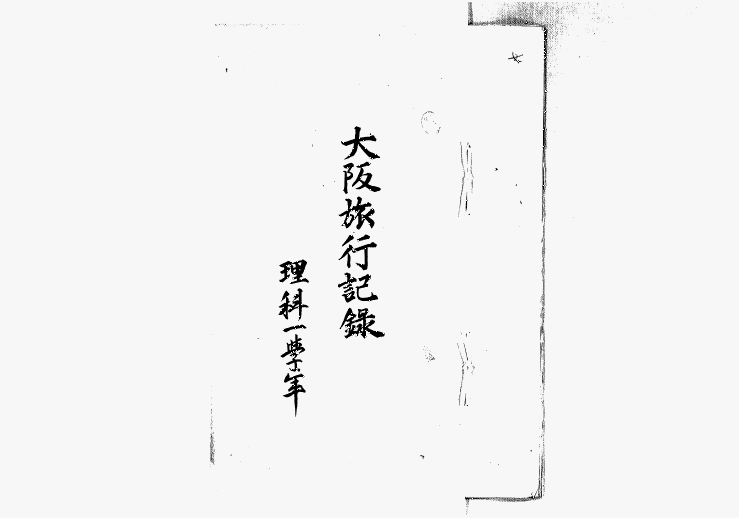 大阪旅行記録
理科一學年